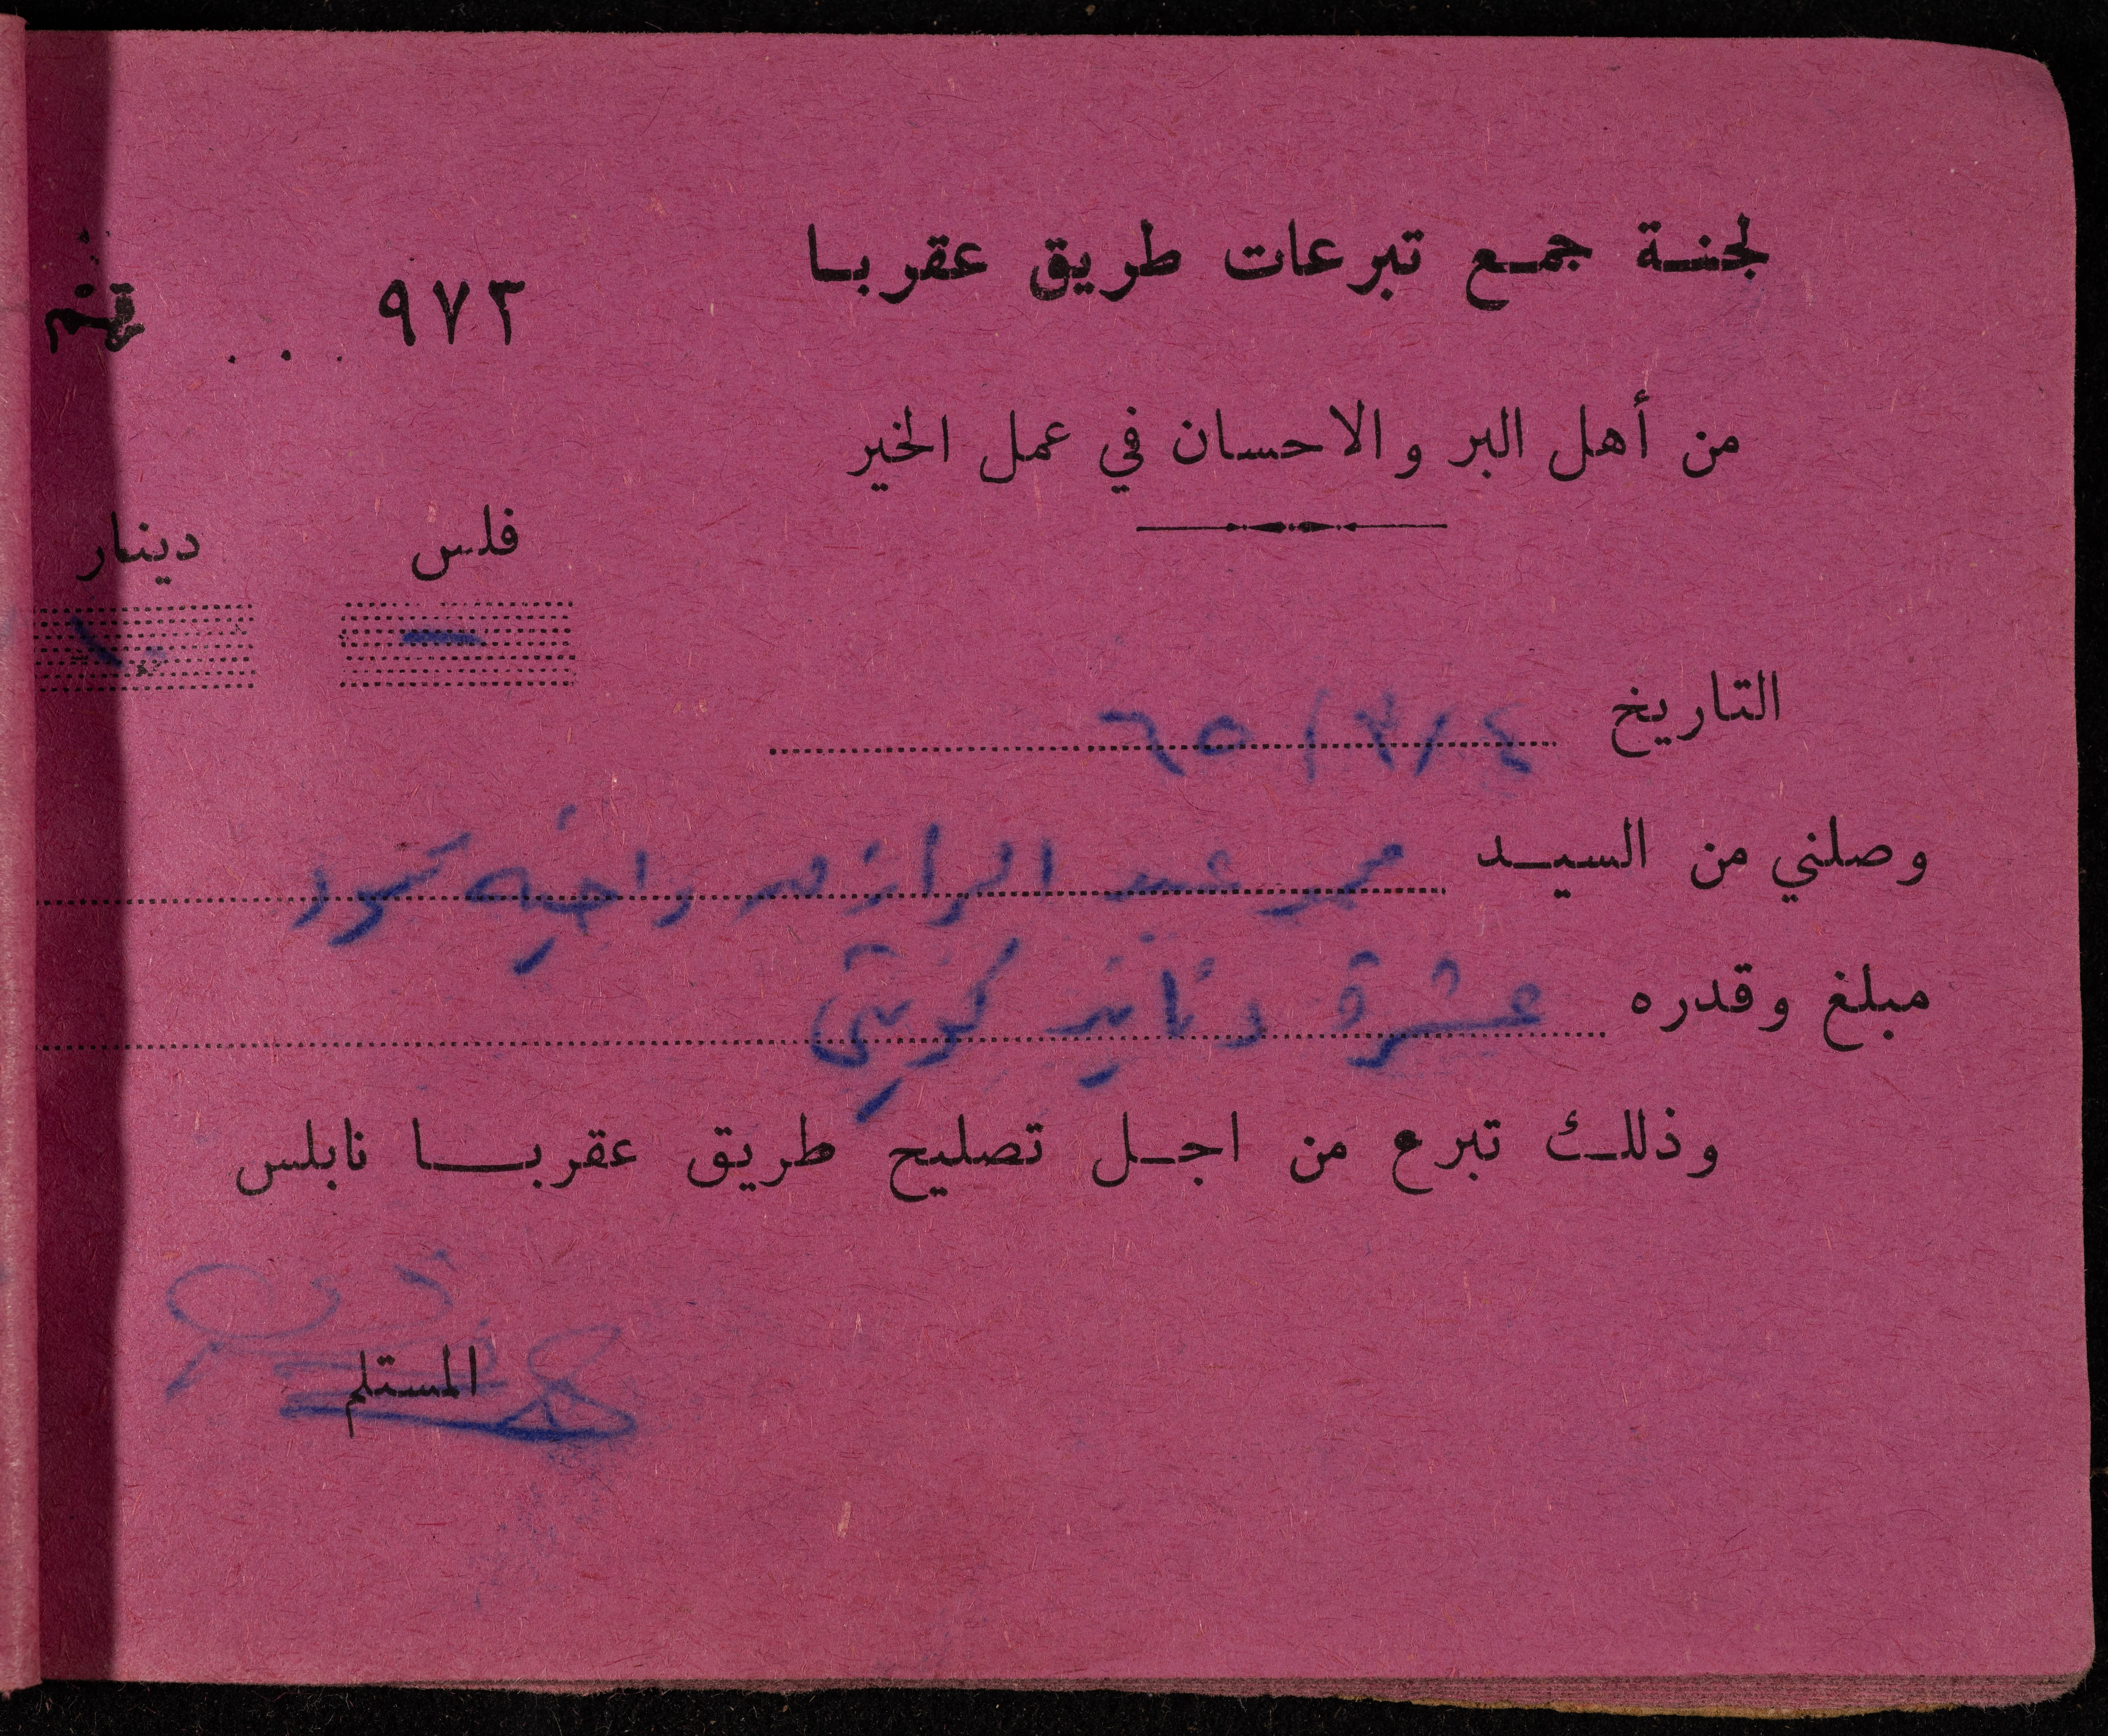 لجنة جمع تبرعات طريق عقربا
٩٧٢ . . .
من أهل البر والاحسان في عمل الخير
فلس دينار
- ١٠
التاريخ ٤/٣/٦٥
وصلني من السيد محمد عبد الرازق
مبلغ وقدره عشرة دنانير كويتي
وذلك تبرع من اجل تصليح طريق عقربا نابلس
المستلم